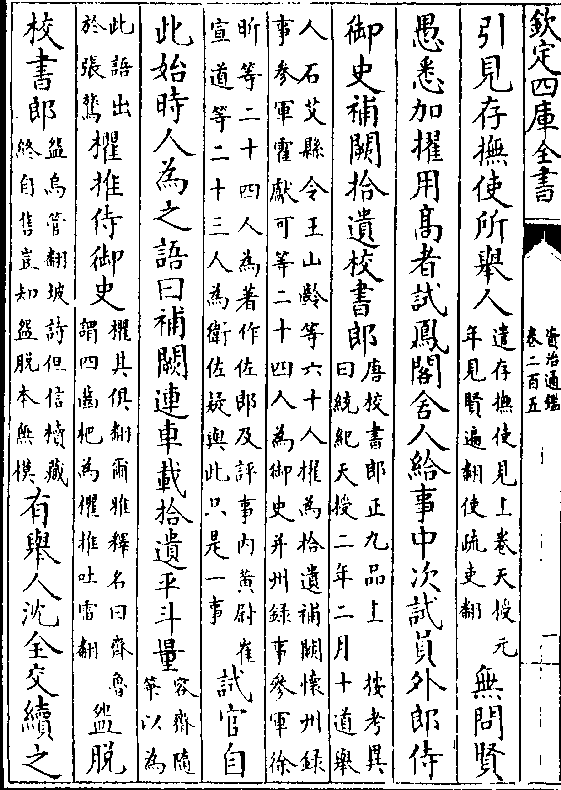 欽定四庫全書
資治通鑑
卷二百五
一
引見存撫使所舉人
遣存撫使見上卷天授元
年見賢遍翻使疏吏翻
無問賢
愚悉加擢用髙者試鳳閣舍人給事中次試員外郎侍
御史補闕拾遺校書郎
唐校書郎正九品上 按考異
曰統紀天授二年二月十道舉
人石艾縣令王山齡等六十人擢為拾遺補闕懷州録
事參軍霍獻可等二十四人為御史并州録事參軍徐
昕等二十四人為著作佐郎及評事内黄尉崔
宣道等二十三人為衛佐疑與此只是一事
試官自
此始時人為之語曰補闕連車載拾遺平斗量
容齋隨
筆以為
此語出
於張鷟
欋推侍御史
欋其俱翻爾雅釋名曰齊魯
謂四齒杷為欋推吐雷翻
盌脱
校書郎
盌烏管翻坡詩但信櫝藏
終自售豈知盌脱本無模
有舉人沈全交續之